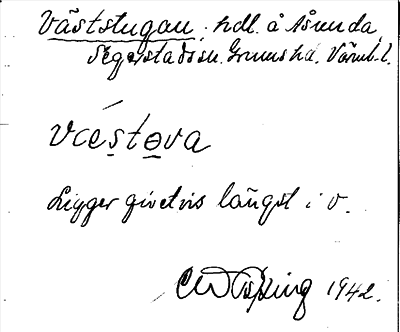 Väststugan, hdl. å Åsunda,
Segerstads sn. Grums hd. Värml. l.
væ̀stova
Ligger givetvis längst i v.
1942.